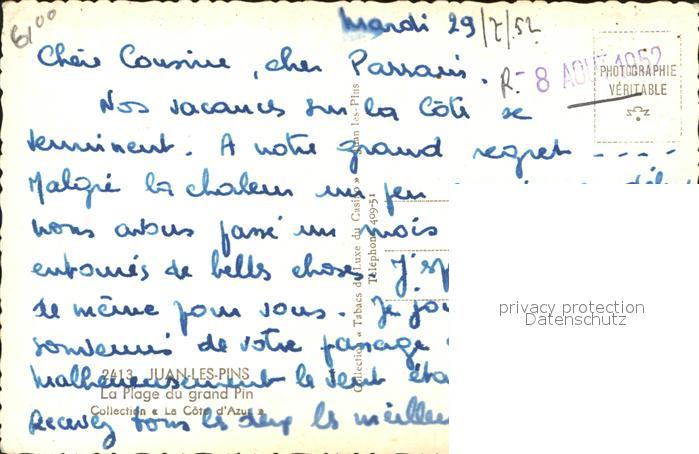 6,00
Mardi 29/7/52
Chère Cousine, cher Parrain.
R. - 8 AOUT 1952
PHOTOGRAPHIE
VÉRITABLE
Nos vacances sur la Côte se
terminent. A notre grand regret - - - -
Malgré la chaleur un peu
nous avons passé un mois
entourés de belles choses. J'esp
de même pour vous. Je jo
souvenirs de votre passage
Malheureusement le vent éta
Recevez tous les deux les meilleu
2413 JUAN-LES-PINS
La Plage du grand Pin
Collection « La Côte d'Azur »
Collection « Tabacs de Luxe du Casino » Juan les-Pins
Téléphone 409-51
privacy protection
Datenschutz